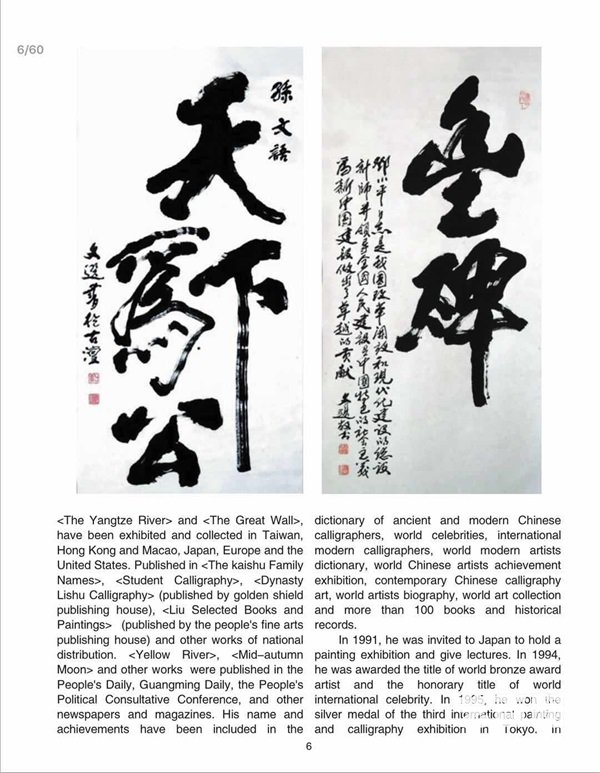 6/60
孫文語
天下
為公
文選書於古澶
豐碑
鄧小平同志是我國改革開放和現代化建設的總設
計師并領導全國人民建設中國特色的社会主義
為新中國建設做出了卓越的貢獻
文選敬書
<The Yangtze River> and <The Great Wall>,
have been exhibited and collected in Taiwan,
Hong Kong and Macao, Japan, Europe and the
United States. Published in <The kaishu Family
Names>, <Student Calligraphy>, <Dynasty
Lishu Calligraphy> (published by golden shield
publishing house), <Liu Selected Books and
Paintings> (published by the people's fine arts
publishing house) and other works of national
distribution. <Yellow River>, <Mid–autumn
Moon> and other works were published in the
People's Daily, Guangming Daily, the People's
Political Consultative Conference, and other
newspapers and magazines. His name and
achievements have been included in the
dictionary of ancient and modern Chinese
calligraphers, world celebrities, international
modern calligraphers, world modern artists
dictionary, world Chinese artists achievement
exhibition, contemporary Chinese calligraphy
art, world artists biography, world art collection
and more than 100 books and historical
records.
In 1991, he was invited to Japan to hold a
painting exhibition and give lectures. In 1994,
he was awarded the title of world bronze award
artist and the honorary title of world
international celebrity. In 1995, he won the
silver medal of the third international painting
and calligraphy exhibition in Tokyo. In
6